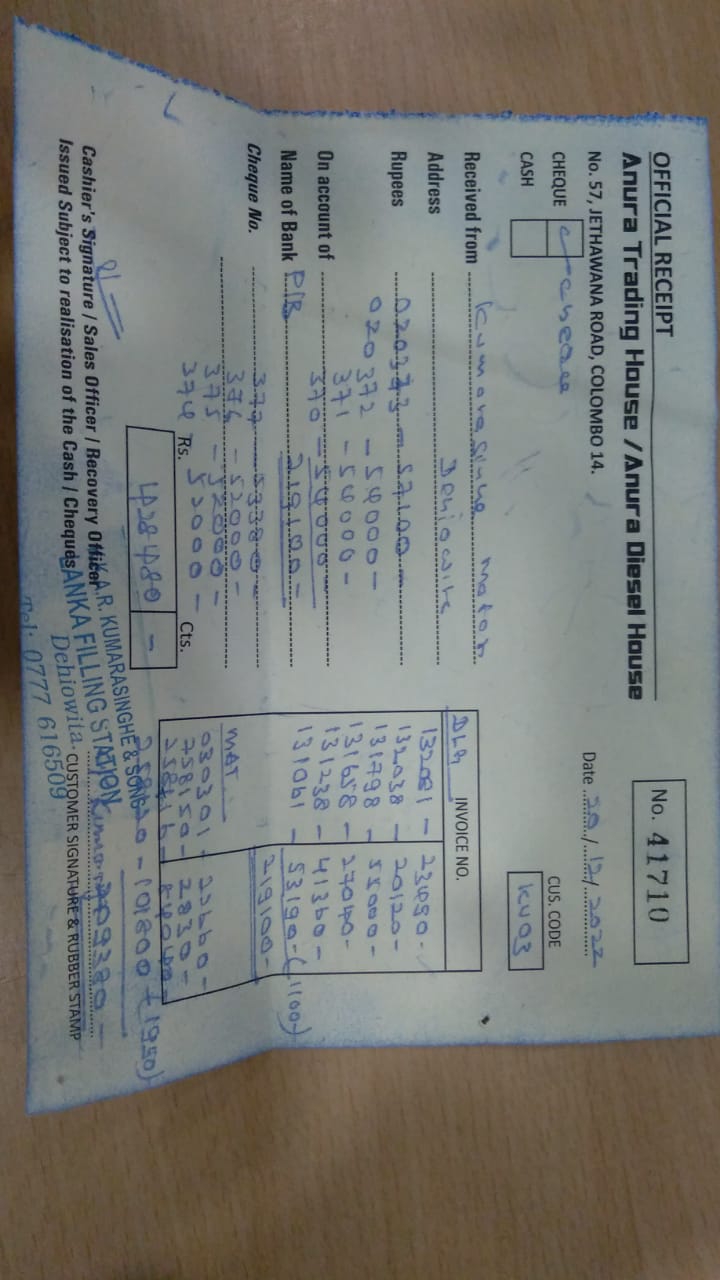 OFFICIAL RECEIPT
No. 41710
Anura Trading House / Anura Diesel House
No. 57, JETHAWANA ROAD, COLOMBO 14.
Date 20/12/2022
CHEQUE
CASH
CUS. CODE
KU03
Received from Kumarasinhe motor
Address
Rupees 020373 - 57100 -
020372 - 54000 -
371 - 54000 -
On account of 370 - 54000 -
Name of Bank PIB 219100 -
Cheque No. 377 - 53380 -
376 - 52000 -
375 - 52000 -
374 52000 -
Rs. Cts.
428480 -
INVOICE NO.
132081 - 23450 -
132038 - 20120 -
131798 - 55000 -
131658 - 27040 -
131238 - 41360 -
131061 - 53190 - (1100)
219100 -
MAT
030301 -
758150 - 2830 -
101800 + (1950)
209380 -
Cashier's Signature / Sales Officer / Recovery Officer
Issued Subject to realisation of the Cash / Cheques
K.A.R. KUMARASINGHE & SONS
LANKA FILLING STATION
Dehiowita.
Tel: 0777 616509
CUSTOMER SIGNATURE & RUBBER STAMP